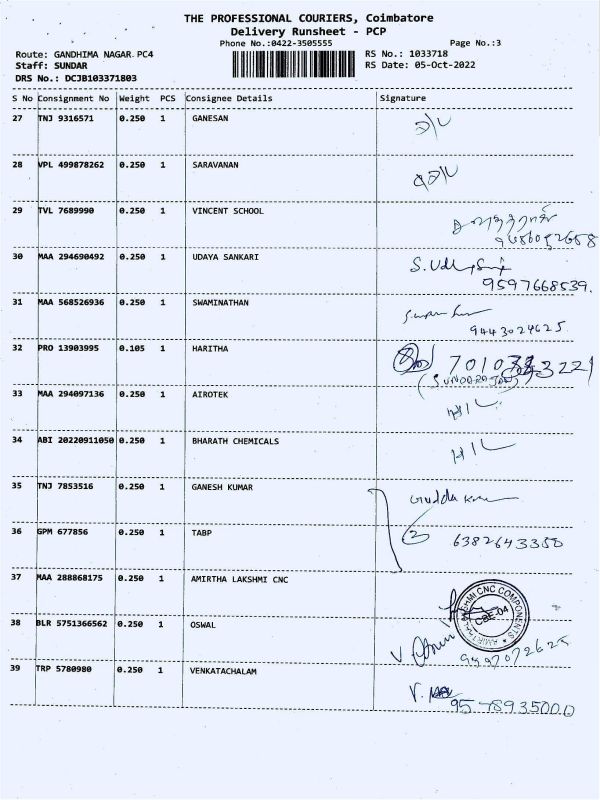 THE PROFESSIONAL COURIERS, Coimbatore
Delivery Runsheet - PCP
Phone No.:0422-3505555 Page No.:3
Route: GANDHIMA NAGAR PC4 RS No.: 1033718
Staff: SUNDAR RS Date: 05-Oct-2022
DRS No.: DCJB103371803
S No Consignment No Weight PCS Consignee Details Signature
27 TNJ 9316571 0.250 1 GANESAN
28 VPL 499878262 0.250 1 SARAVANAN
29 TVL 7689990 0.250 1 VINCENT SCHOOL
30 MAA 294690492 0.250 1 UDAYA SANKARI
9597668539.
31 MAA 568526936 0.250 1 SWAMINATHAN
9443024625
32 PRO 13903995 0.105 1 HARITHA
33 MAA 294097136 0.250 1 AIROTEK
34 ABI 20220911050 0.250 1 BHARATH CHEMICALS
35 TNJ 7853516 0.250 1 GANESH KUMAR
36 GPM 677856 0.250 1 TABP
2 6382643350
37 MAA 288868175 0.250 1 AMIRTHA LAKSHMI CNC
CNC COMPONENTS
CBE-04
38 BLR 5751366562 0.250 1 OSWAL
39 TRP 5780980 0.250 1 VENKATACHALAM
9578935000